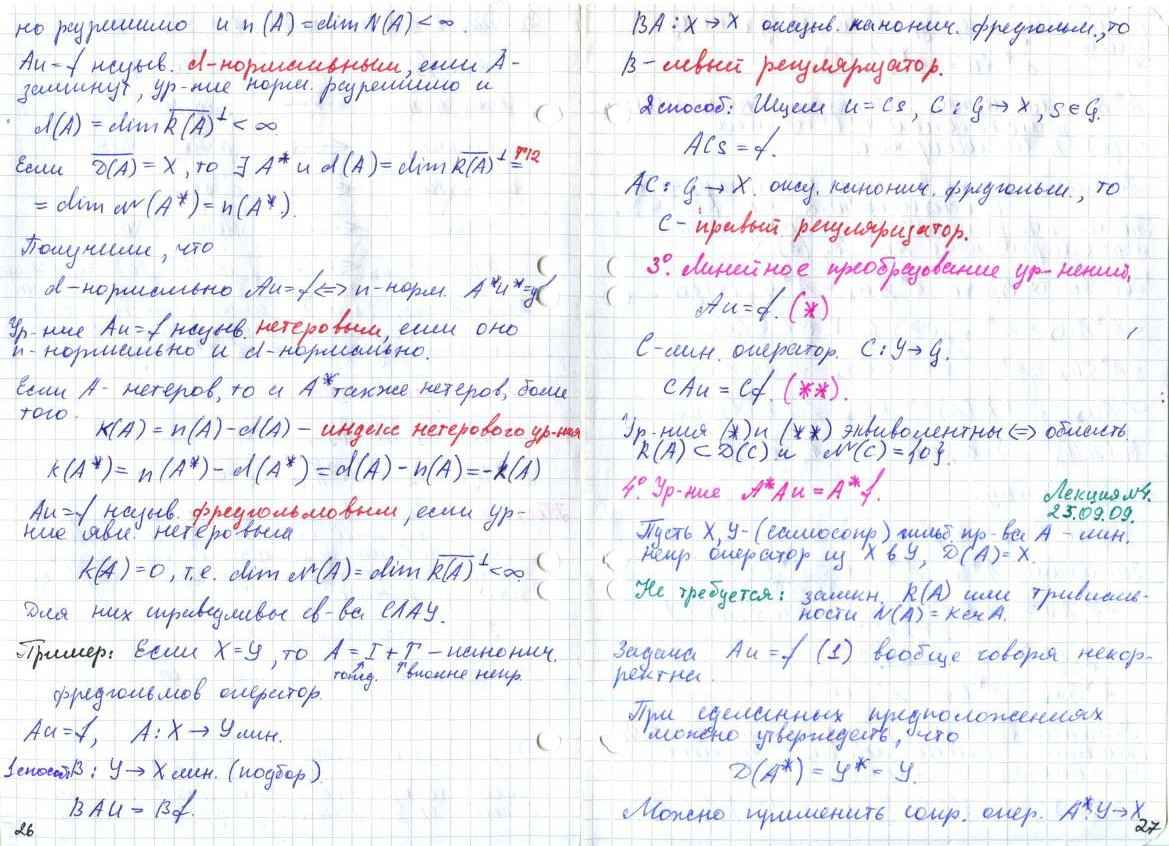 но разрешимо и n(A) = dim N(A) < ∞.
Au=f назыв. d-нормальным, если A-
замкнут, ур-ние норм. разрешимо и
d(A) = dim R(A)^⊥ < ∞
Если D(A) = X, то ∃ A* и d(A) = dim R(A)^⊥ = T12
= dim N(A*) = n(A*).
Получили, что
d-нормально Au=f ⇔ n-норм. A*u*=g
Ур-ние Au=f назыв. нетеровым, если оно
n-нормально и d-нормально.
Если A- нетеров, то и A* также нетеров, более
того.
κ(A) = n(A)-d(A) - индекс нетерового ур-ния
k(A*) = n(A*)-d(A*) = d(A)-n(A) = -k(A)
Au=f назыв. фредгольмовым, если ур-
ние явл. нетеровым
k(A)=0, т.е. dim N(A) = dim R(A)^⊥ < ∞
Для них справедливы св-ва СЛАУ.
Пример: Если X=Y, то A = I + T - канонич.
тожд. вполне непр.
фредгольмов оператор.
Au=f, A: X → Y лин.
1 способ: B: Y → X лин. (подбор)
BAu = Bf.
26
BA: X → X оказыв. канонич. фредгольм., то
B- левый регуляризатор.
2 способ: Ищем u = Cs, C: G → X, s ∈ G.
ACs = f.
AC: G → X. оказ. канонич. фредгольм., то
C- правый регуляризатор.
3°. Линейное преобразование ур-нений,
Au = f. (*)
C-лин. оператор. C: Y → G.
CAu = Cf. (**).
Ур-ния (*) и (**) эквивалентны ⇔ область
R(A) ⊂ D(C) и N(C) = {0}.
4° Ур-ние A*Au = A*f.
Лекция №4.
23.09.09.
Пусть X, Y- (самосопр) гильб. пр-ва A - лин.
непр. оператор из X в Y, D(A) = X.
Не требуется: замкн. R(A) или тривиаль-
ности N(A) = Ker A.
Задача Au=f (1) вообще говоря некор-
ректна.
При сделанных предположениях
можно утверждать, что
D(A*) = Y* = Y.
Можно применить сопр. опер. A*: Y → X
27